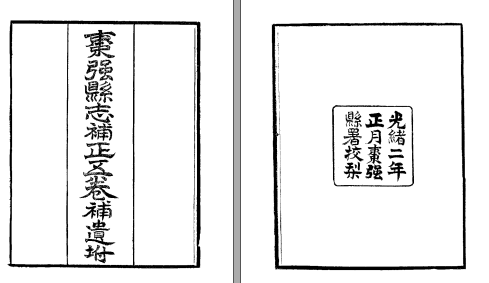 棗強縣志補正五卷補遺坿
光緒二年
正月棗强
縣署挍棃